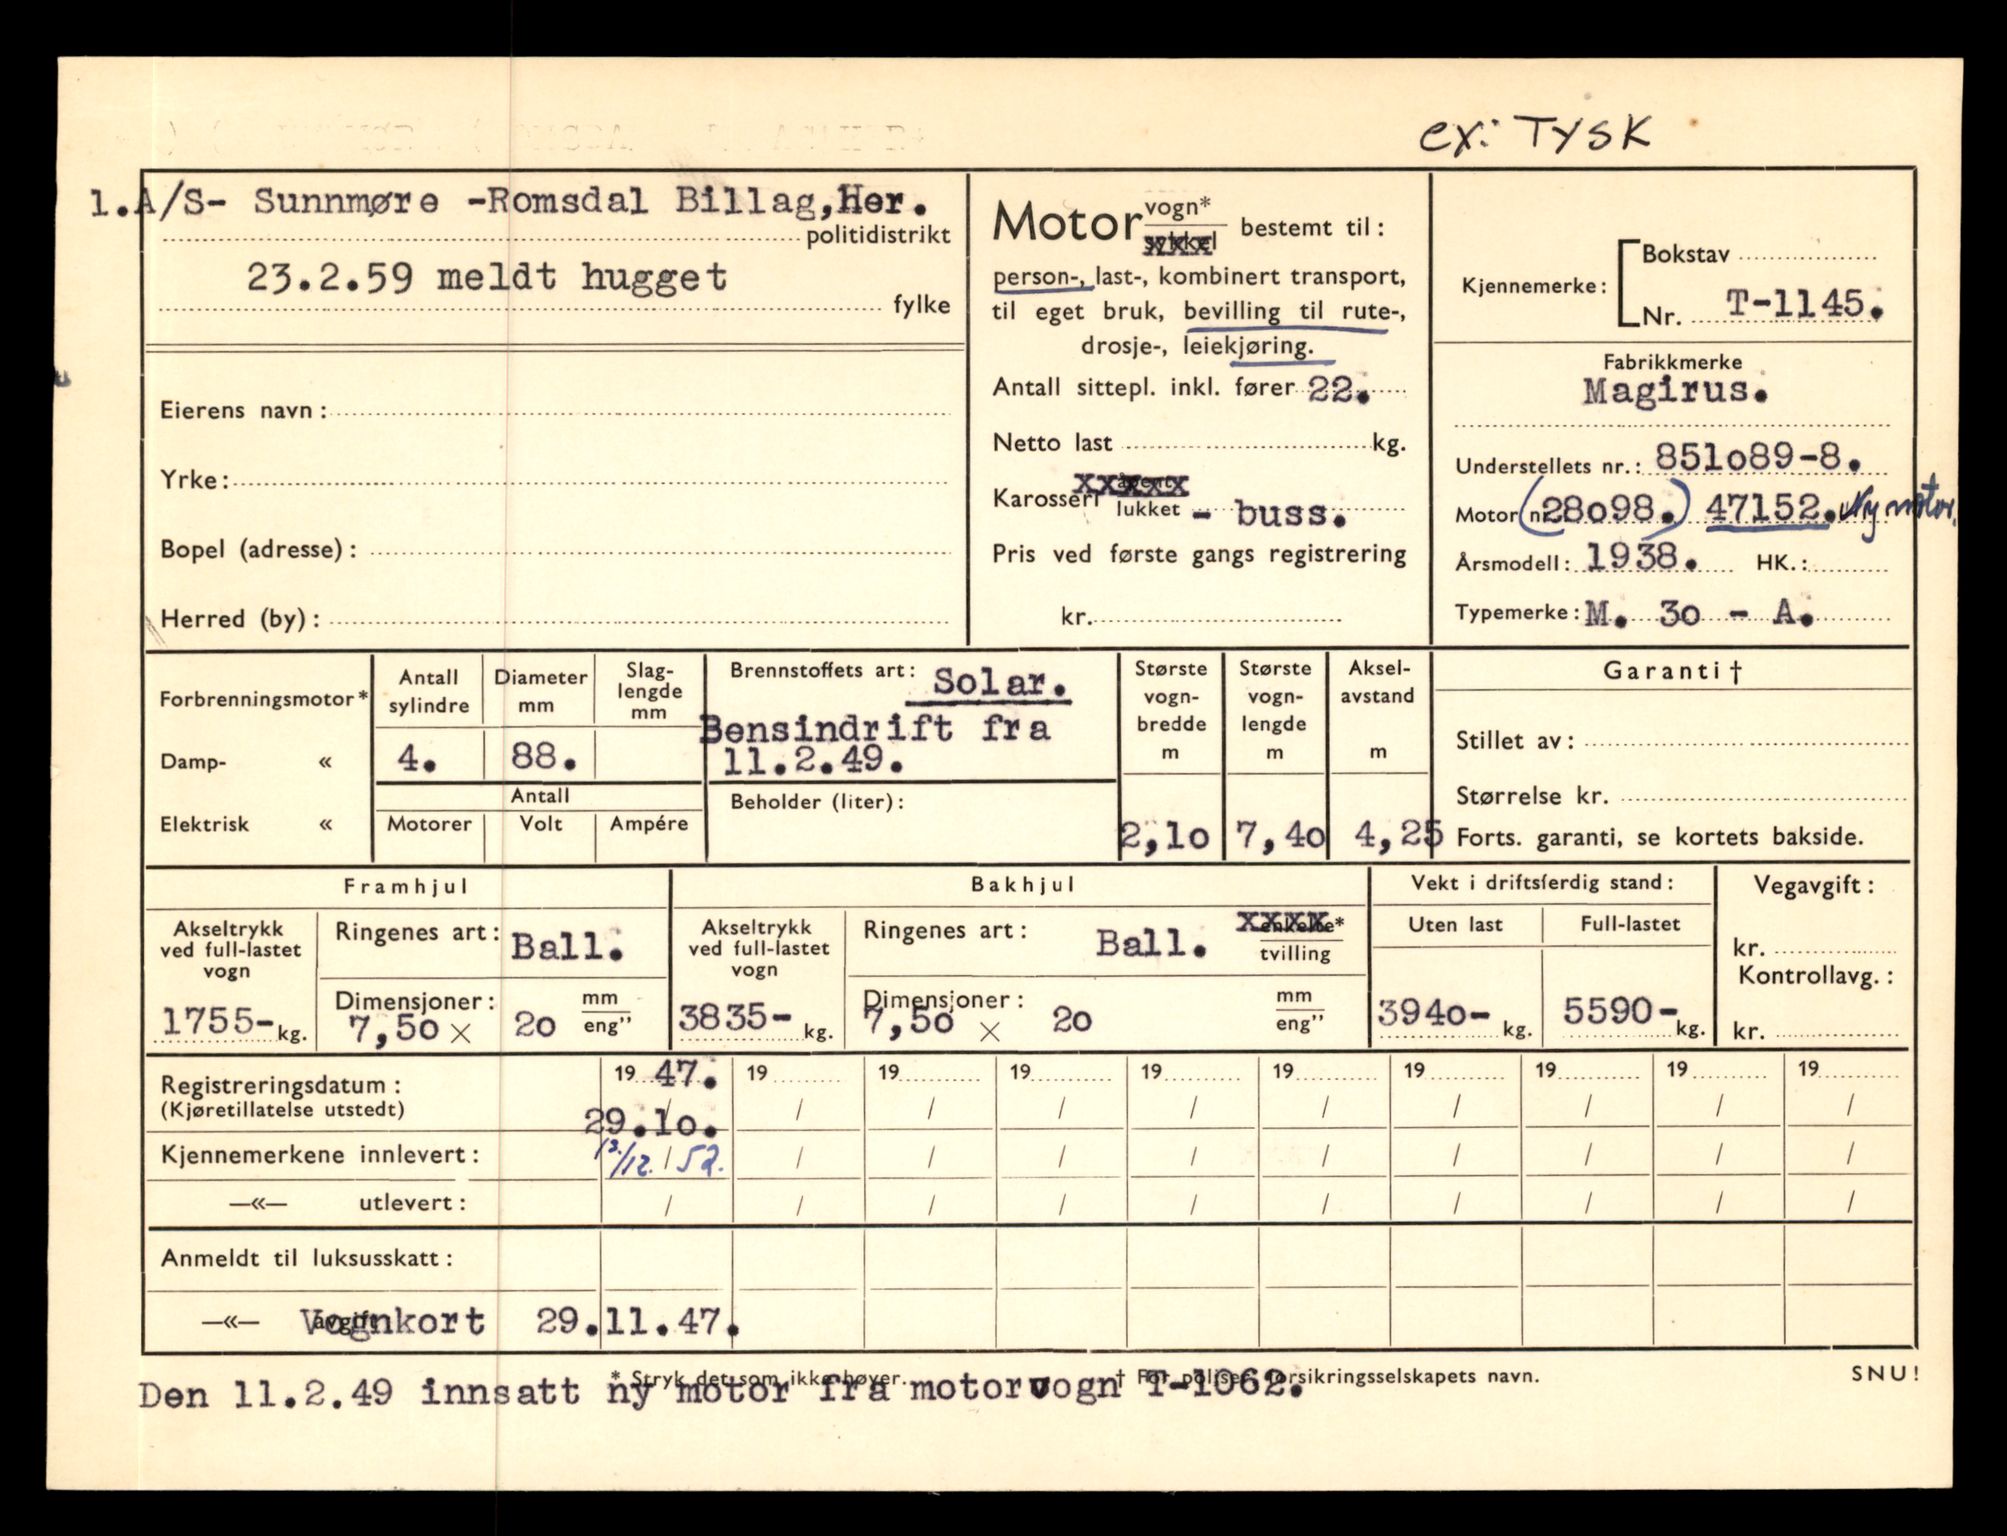 ex: TYSK
1.A/S- Sunnmøre -Romsdal Billag, Her.
politidistrikt
23.2.59 meldt hugget
fylke
Eierens navn:
Yrke:
Bopel (adresse):
Herred (by):
Motor vogn* bestemt til:
sykkel
person-, last-, kombinert transport,
til eget bruk, bevilling til rute-,
drosje-, leiekjøring.
Antall sittepl. inkl. fører 22.
Netto last kg.
Karosseri åpent
lukket - buss.
Pris ved første gangs registrering
kr.
Kjennemerke: Bokstav
Nr. T-1145.
Fabrikkmerke
Magirus.
Understellets nr.: 851o89-8.
Motor nr. (28o98.) 47152. Ny motor.
Årsmodell: 1938. HK.:
Typemerke: M. 3o - A.
Forbrenningsmotor*
Damp- «
Elektrisk «
Antall sylindre
4.
Diameter mm
88.
Slag-lengde mm
Antall
Motorer Volt Ampére
Brennstoffets art: Solar.
Bensindrift fra
11.2.49.
Beholder (liter):
Største vogn-bredde m
2,1o
Største vogn-lengde m
7,4o
Aksel-avstand m
4,25
Garanti †
Stillet av:
Størrelse kr.
Forts. garanti, se kortets bakside.
Framhjul
Akseltrykk ved full-lastet vogn
1755- kg.
Ringenes art: Ball.
Dimensjoner: mm
7,5o x 2o eng”
Bakhjul
Akseltrykk ved full-lastet vogn
3835- kg.
Ringenes art: Ball. enkelte*
tvilling
Dimensjoner: mm
7,5o x 2o eng”
Vekt i driftsferdig stand:
Uten last
394o- kg.
Full-lastet
5590- kg.
Vegavgift:
kr.
Kontrollavg.:
kr.
Registreringsdatum: 19 47. 19 19 19 19 19 19 19 19 19
(Kjøretillatelse utstedt) 29.1o. / / / / / / / / /
Kjennemerkene innlevert: 13/12. 52. / / / / / / / / /
—«— utlevert: / / / / / / / / / /
Anmeldt til luksusskatt:
—«— avgift Vognkort 29.11.47.
* Stryk det som ikke høver. † For poliser, forsikringsselskapets navn. SNU!
Den 11.2.49 innsatt ny motor fra motorvogn T-1o62.